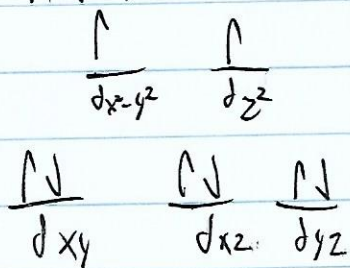 ↿ ↿
dx²-y² dz²
↿⇂ ↿⇂ ↿⇂
dxy dxz dyz